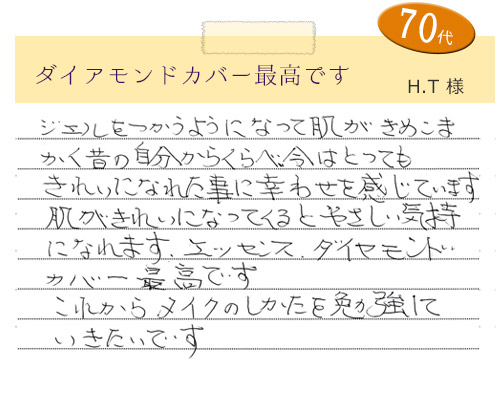 70代
ダイアモンドカバー最高です
H.T 様
ジェルをつかうようになって肌がきめこま
かく昔の自分からくらべ今はとっても
きれいになれた事に幸わせを感じています
肌がきれいになってくるとやさしい気持
になれます、エッセンス、ダイヤモンド
カバー最高です
これから、メイクのしかたを勉強して
いきたいです